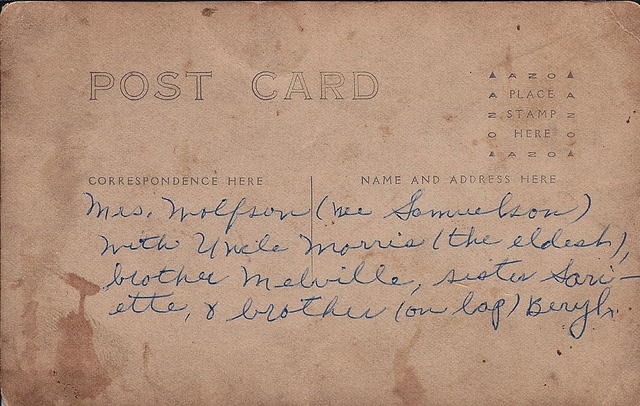 POST CARD
▲ AZO ▲
A PLACE A
Z STAMP Z
O HERE O
▲ AZO ▲
CORRESPONDENCE HERE
NAME AND ADDRESS HERE
Mrs. Wolfson (nee Samuelson)
with Uncle Morris (the eldest),
brother Melville, sister Sari-
ette, & brother (on lap) Beryl.